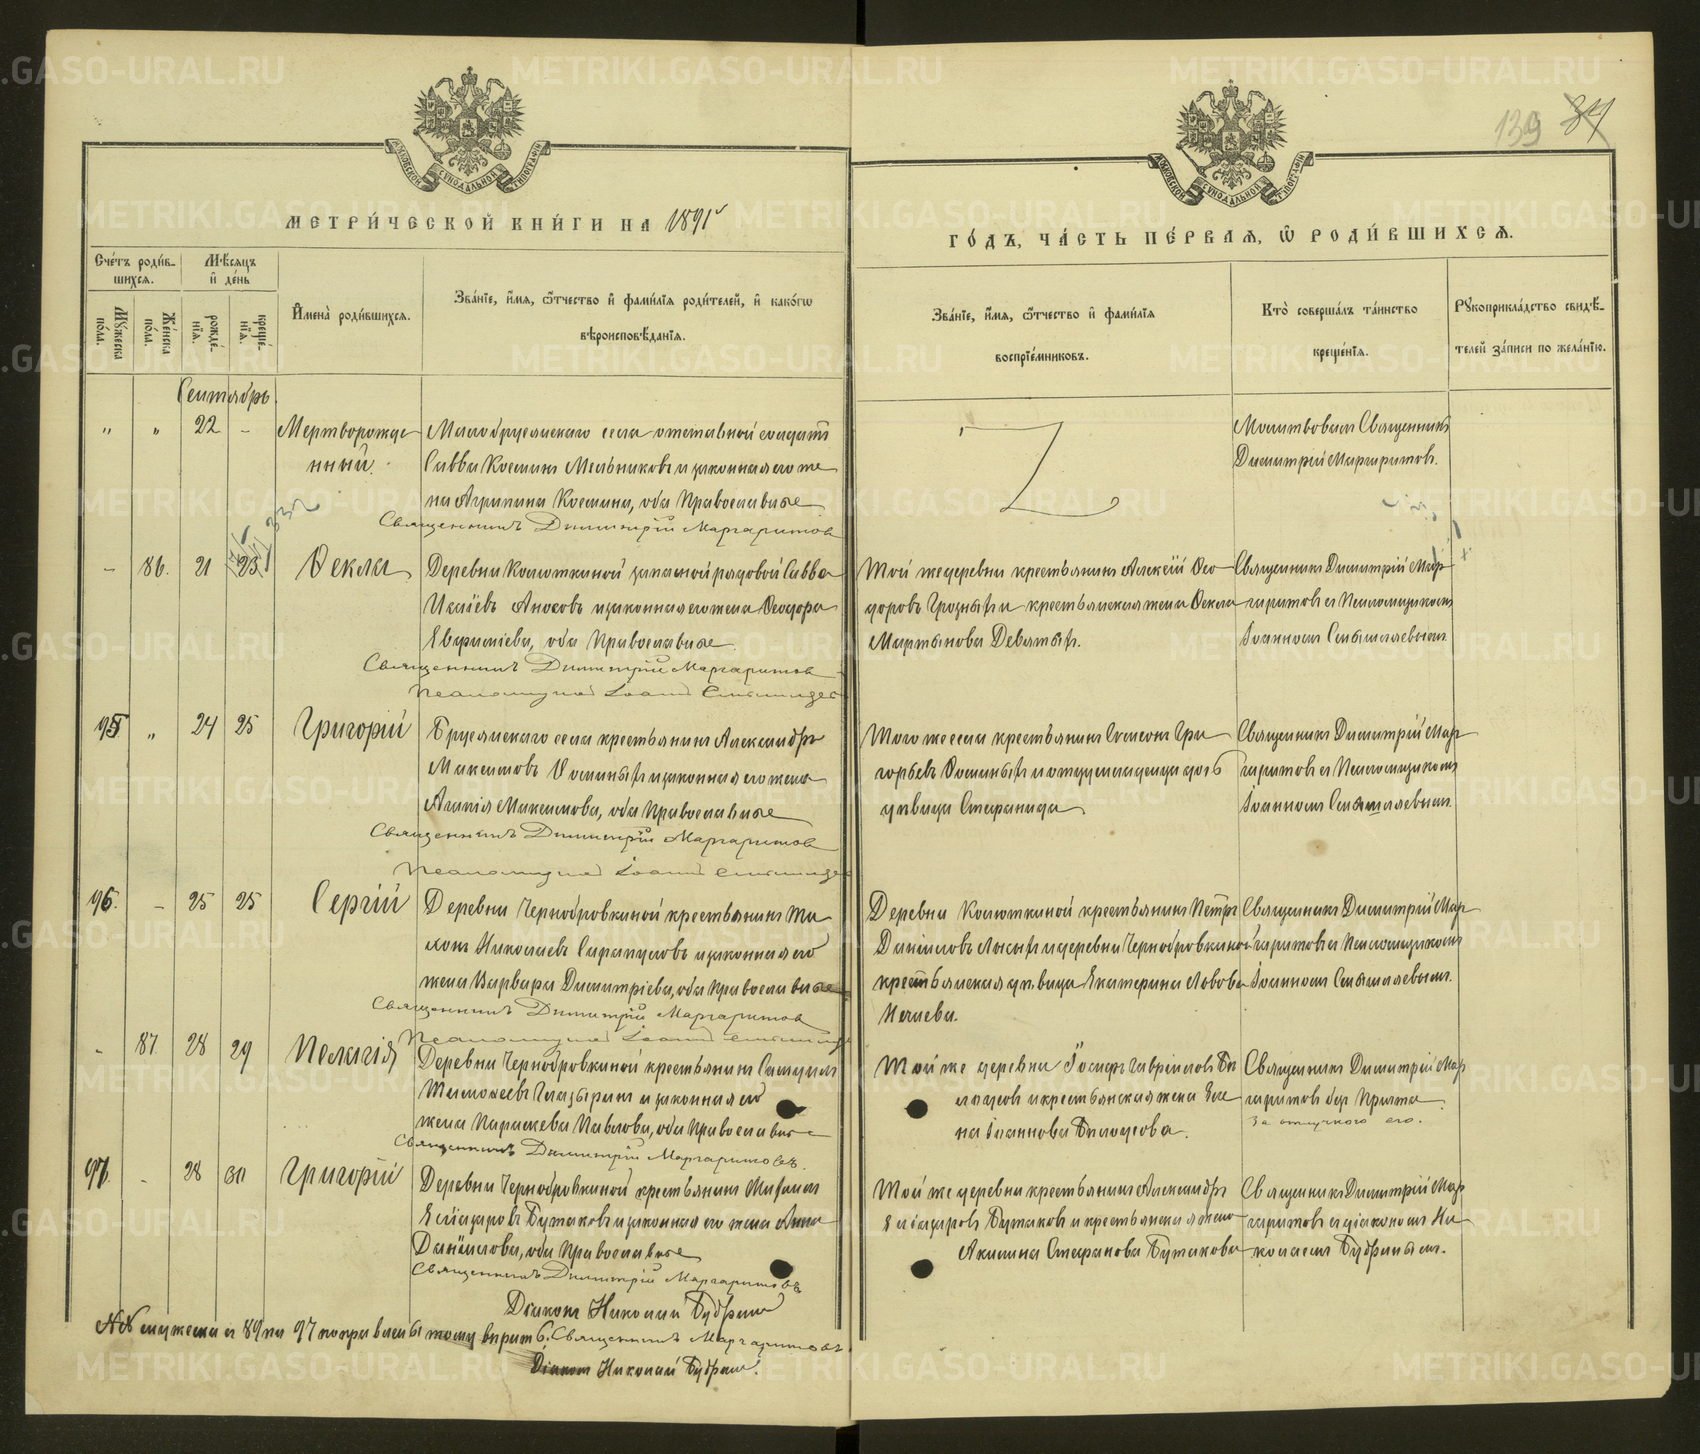 139 84
МЕТРИ́ЧЕСКОЙ КНИ́ГИ НА 1891
ГО́ДЪ, ЧА́СТЬ ПЕ́РВАЯ, Ѡ РОДИ́ВШИХСЯ.
Сче́тъ роди́в-
шихся.
Мѣ́сяцъ
и де́нь
Мꙋ́жеска по́ла.
Же́нска по́ла.
рожде́-
нїя.
креще́-
нїя.
Имена̀ роди́вшихся.
Зва́нїе, и́мя, ѻ́тчество и фами́лїя роди́телей, и како́гѡ
вѣроисповѣ́данїя.
Зва́нїе, и́мя, ѻ́тчество и фами́лїя
воспрїе́мниковъ.
Кто̀ соверша́лъ та́инство
креще́нїя.
Рꙋкоприкла́дство свидѣ́-
телей за́писи по жела́нїю.
Сентябрь.
„ „ 22 – Мертворожде
нный.
Малобрусянскаго села отставной солдатъ
Савва Косминъ Мельниковъ и законная его же
на Агрипина Космина, оба Православные
Священникъ Димитрій Маргаритов
Молитвовалъ Священникъ
Димитрій Маргаритовъ.
– 86. 21 23 Ѳекла
Деревни Колюткиной запасной рядовой Савва
Исаіевъ Аносовъ и законная его жена Ѳеодора
Евфиміева, оба Православные.
Священникъ Димитрій Маргаритов
Псаломщикъ Іоаннъ
Той же деревни крестьянинъ Алексій Ѳео
доровъ Грозныхъ и крестьянская жена Ѳекла
Мартынова Девятыхъ.
Священникъ Димитрій Мар
гаритовъ съ Псаломщикомъ
Іоанномъ
95 „ 24 25 Григорій
Брусянскаго села крестьянинъ Александръ
Максимовъ Ѳоминыхъ и законная его жена
Агапія Максимова, оба Православные
Священникъ Димитрій Маргаритов
Псаломщикъ Іоаннъ
Того же села крестьянинъ Симеонъ Гри
горьевъ Ѳоминыхъ и дочь
дѣвица Стефанида
Священникъ Димитрій Мар
гаритовъ съ Псаломщикомъ
Іоанномъ
96. – 25 25 Сергій
Деревни Чернобровкиной крестьянинъ Ти
хонъ Николаевъ Сарапуловъ и законная его
жена Варвара Димитріева, оба Православные
Священникъ Димитрій Маргаритов
Псаломщикъ Іоаннъ
Деревни Колюткиной крестьянинъ Петръ
Даниловъ Лысыхъ и деревни Чернобровкиной
крестьянская дѣвица Екатерина Львова
Священникъ Димитрій Мар
гаритовъ съ Псаломщикомъ
Іоанномъ
87. 28 29 Пелагія
Деревни Чернобровкиной крестьянинъ Самуилъ
Тимоѳеевъ Глазыринъ и законная его
жена Параскева Павлова, оба Православные
Священникъ Димитрій Маргаритовъ.
Той же деревни Іосифъ Гавріиловъ Бѣ
лоусовъ и крестьянская жена Еле
на Іоаннова Бѣлоусова.
Священникъ Димитрій Мар
гаритовъ безъ Причта
за отлучкою его.
97. – 28 30 Григорій
Деревни Чернобровкиной крестьянинъ Михаилъ
Елиазаровъ Бутаковъ и законная его жена Анна
Даніилова, оба Православные
Священникъ Димитрій Маргаритовъ
Діаконъ Николай
Той же деревни крестьянинъ Александръ
Елиазаровъ Бутаковъ и крестьянская жена
Акилина Стефанова Бутакова
Священникъ Димитрій Мар
гаритовъ съ діакономъ Ни
колаемъ
№№ мужеска съ 89 по 97 поправленному вѣрить. Священникъ Маргаритовъ
Діаконъ Николай